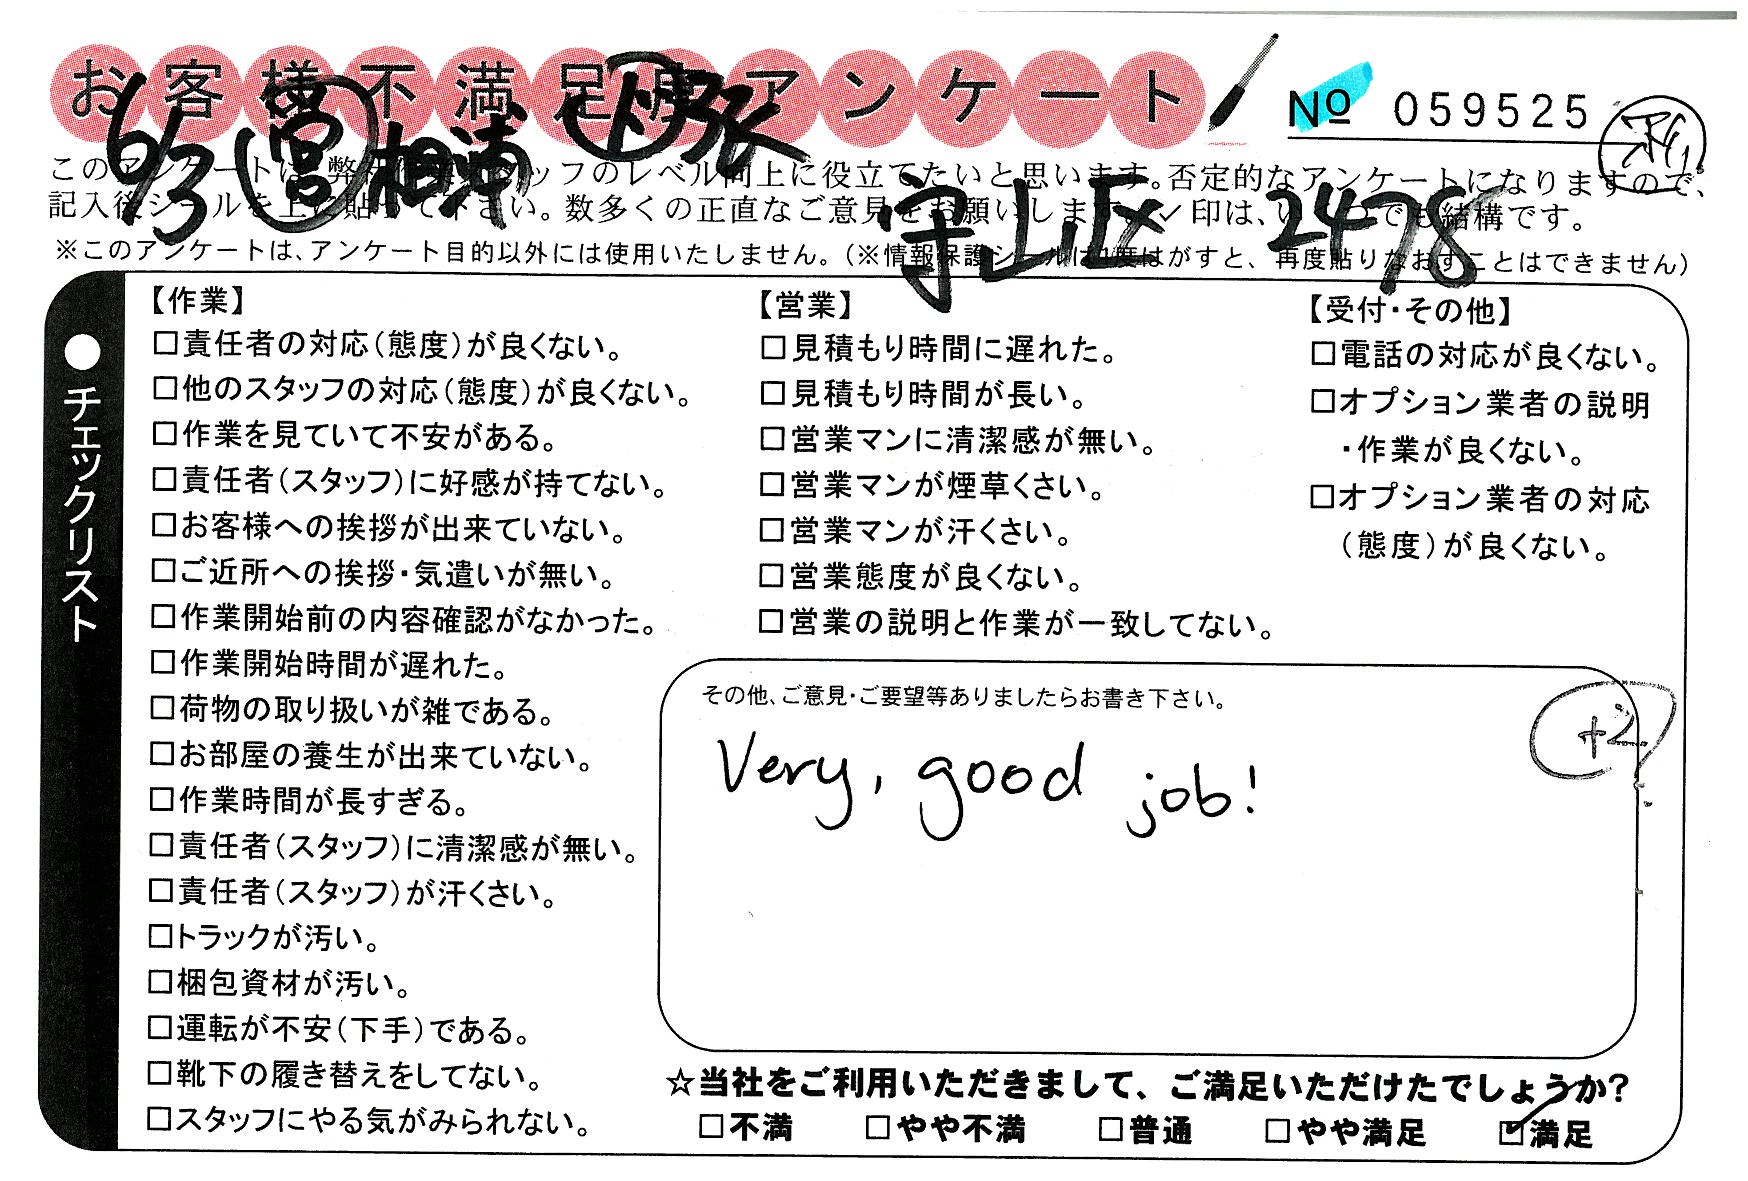 お客様不満足度アンケート
No 059525
6/3 営 相浦 作 張
守山区 2478
このアンケートは、弊社作業スタッフのレベル向上に役立てたいと思います。否定的なアンケートになりますので、
記入後シールを上に貼って下さい。数多くの正直なご意見をお願いします。✓印は、いくつでも結構です。
※このアンケートは、アンケート目的以外には使用いたしません。（※情報保護シールは1度はがすと、再度貼りなおすことはできません）
●チェックリスト
【作業】
□責任者の対応（態度）が良くない。
□他のスタッフの対応（態度）が良くない。
□作業を見ていて不安がある。
□責任者（スタッフ）に好感が持てない。
□お客様への挨拶が出来ていない。
□ご近所への挨拶・気遣いが無い。
□作業開始前の内容確認がなかった。
□作業開始時間が遅れた。
□荷物の取り扱いが雑である。
□お部屋の養生が出来ていない。
□作業時間が長すぎる。
□責任者（スタッフ）に清潔感が無い。
□責任者（スタッフ）が汗くさい。
□トラックが汚い。
□梱包資材が汚い。
□運転が不安（下手）である。
□靴下の履き替えをしてない。
□スタッフにやる気がみられない。
【営業】
□見積もり時間に遅れた。
□見積もり時間が長い。
□営業マンに清潔感が無い。
□営業マンが煙草くさい。
□営業マンが汗くさい。
□営業態度が良くない。
□営業の説明と作業が一致してない。
【受付・その他】
□電話の対応が良くない。
□オプション業者の説明
・作業が良くない。
□オプション業者の対応
（態度）が良くない。
その他、ご意見・ご要望等ありましたらお書き下さい。
+2
Very, good job!
☆当社をご利用いただきまして、ご満足いただけたでしょうか？
□不満 □やや不満 □普通 □やや満足 ☑満足